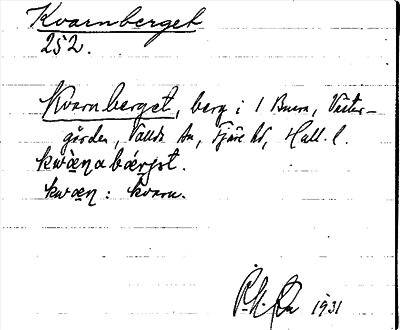 Kvarnberget
252.
Kvarnberget, berg i 1 Buera, Väster-
gården, Vallda sn, Fjäre hd, Hall. l.
kwæ̀ṇabǽrjət.
kwæṇ : kvarn.
1931